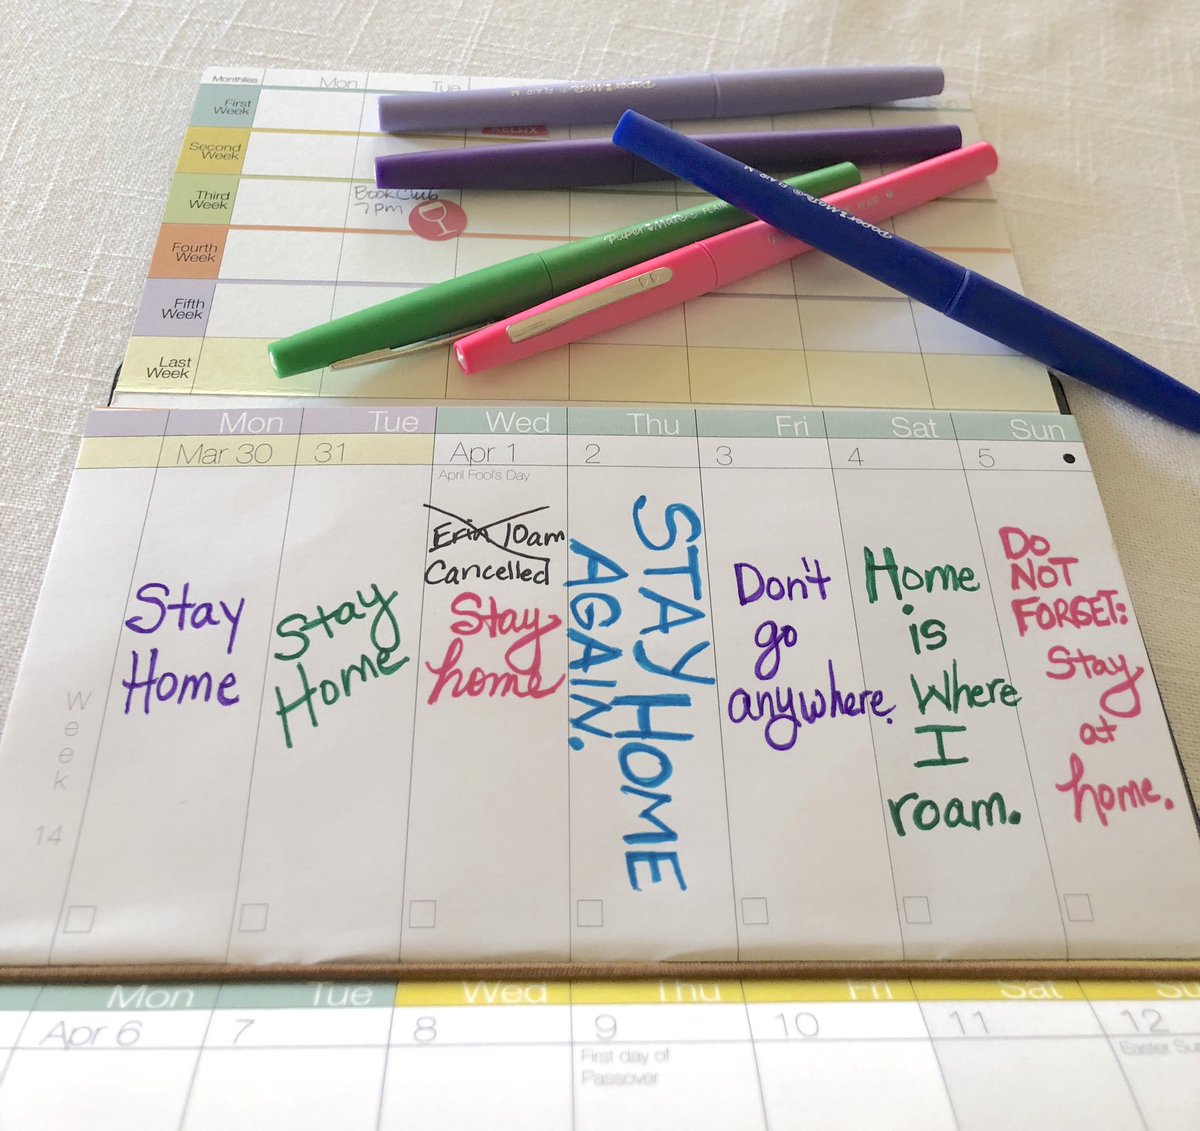 Monthlies Mon Tue Sun
First Week
RELAX
Second Week
Third Week
Book Club
7pm
Fourth Week
Fifth Week
Last Week
Paper Mate® FLAIR M
Paper Mate® FLAIR
FLAIR
Paper Mate® FLAIR M
Mon Tue Wed Thu Fri Sat Sun
Mar 30 31 Apr 1 2 3 4 5
April Fool's Day
Week 14
Stay
Home
Stay
Home
Erin 10am
Cancelled
Stay
home
STAY HOME
AGAIN.
Don't
go
anywhere.
Home
is
Where
I
roam.
DO
NOT
FORGET:
Stay
at
home.
Mon Tue Wed Thu Fri Sat Su
Apr 6 7 8 9 10 11 12
First day of
Passover
Easter Su